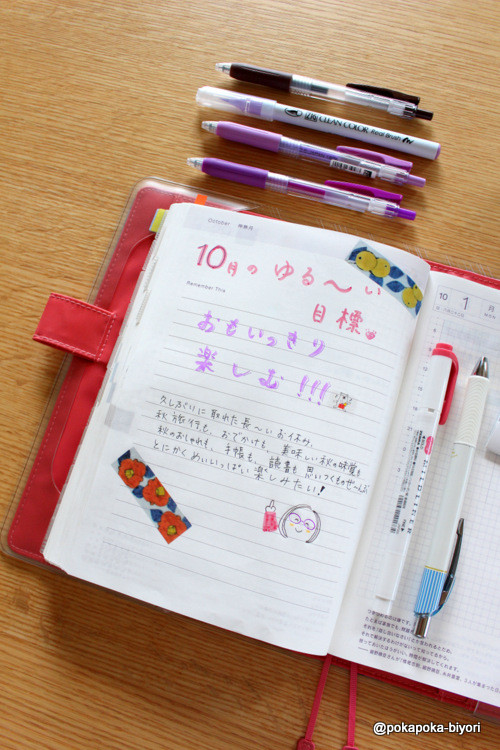 ZIG CLEAN COLOR Real Brush
October 神無月
Remember This
10月のゆる〜い
目標
おもいっきり
楽しむ!!!
久しぶりに取れた長〜いお休み、
秋旅行も、おでかけも、美味しい秋の味覚も
秋のおしゃれも、手帳も、読書も思いつくものぜーんぶ
とにかくめいいっぱい楽しみたい!
10 1 月
@pokapoka-biyori